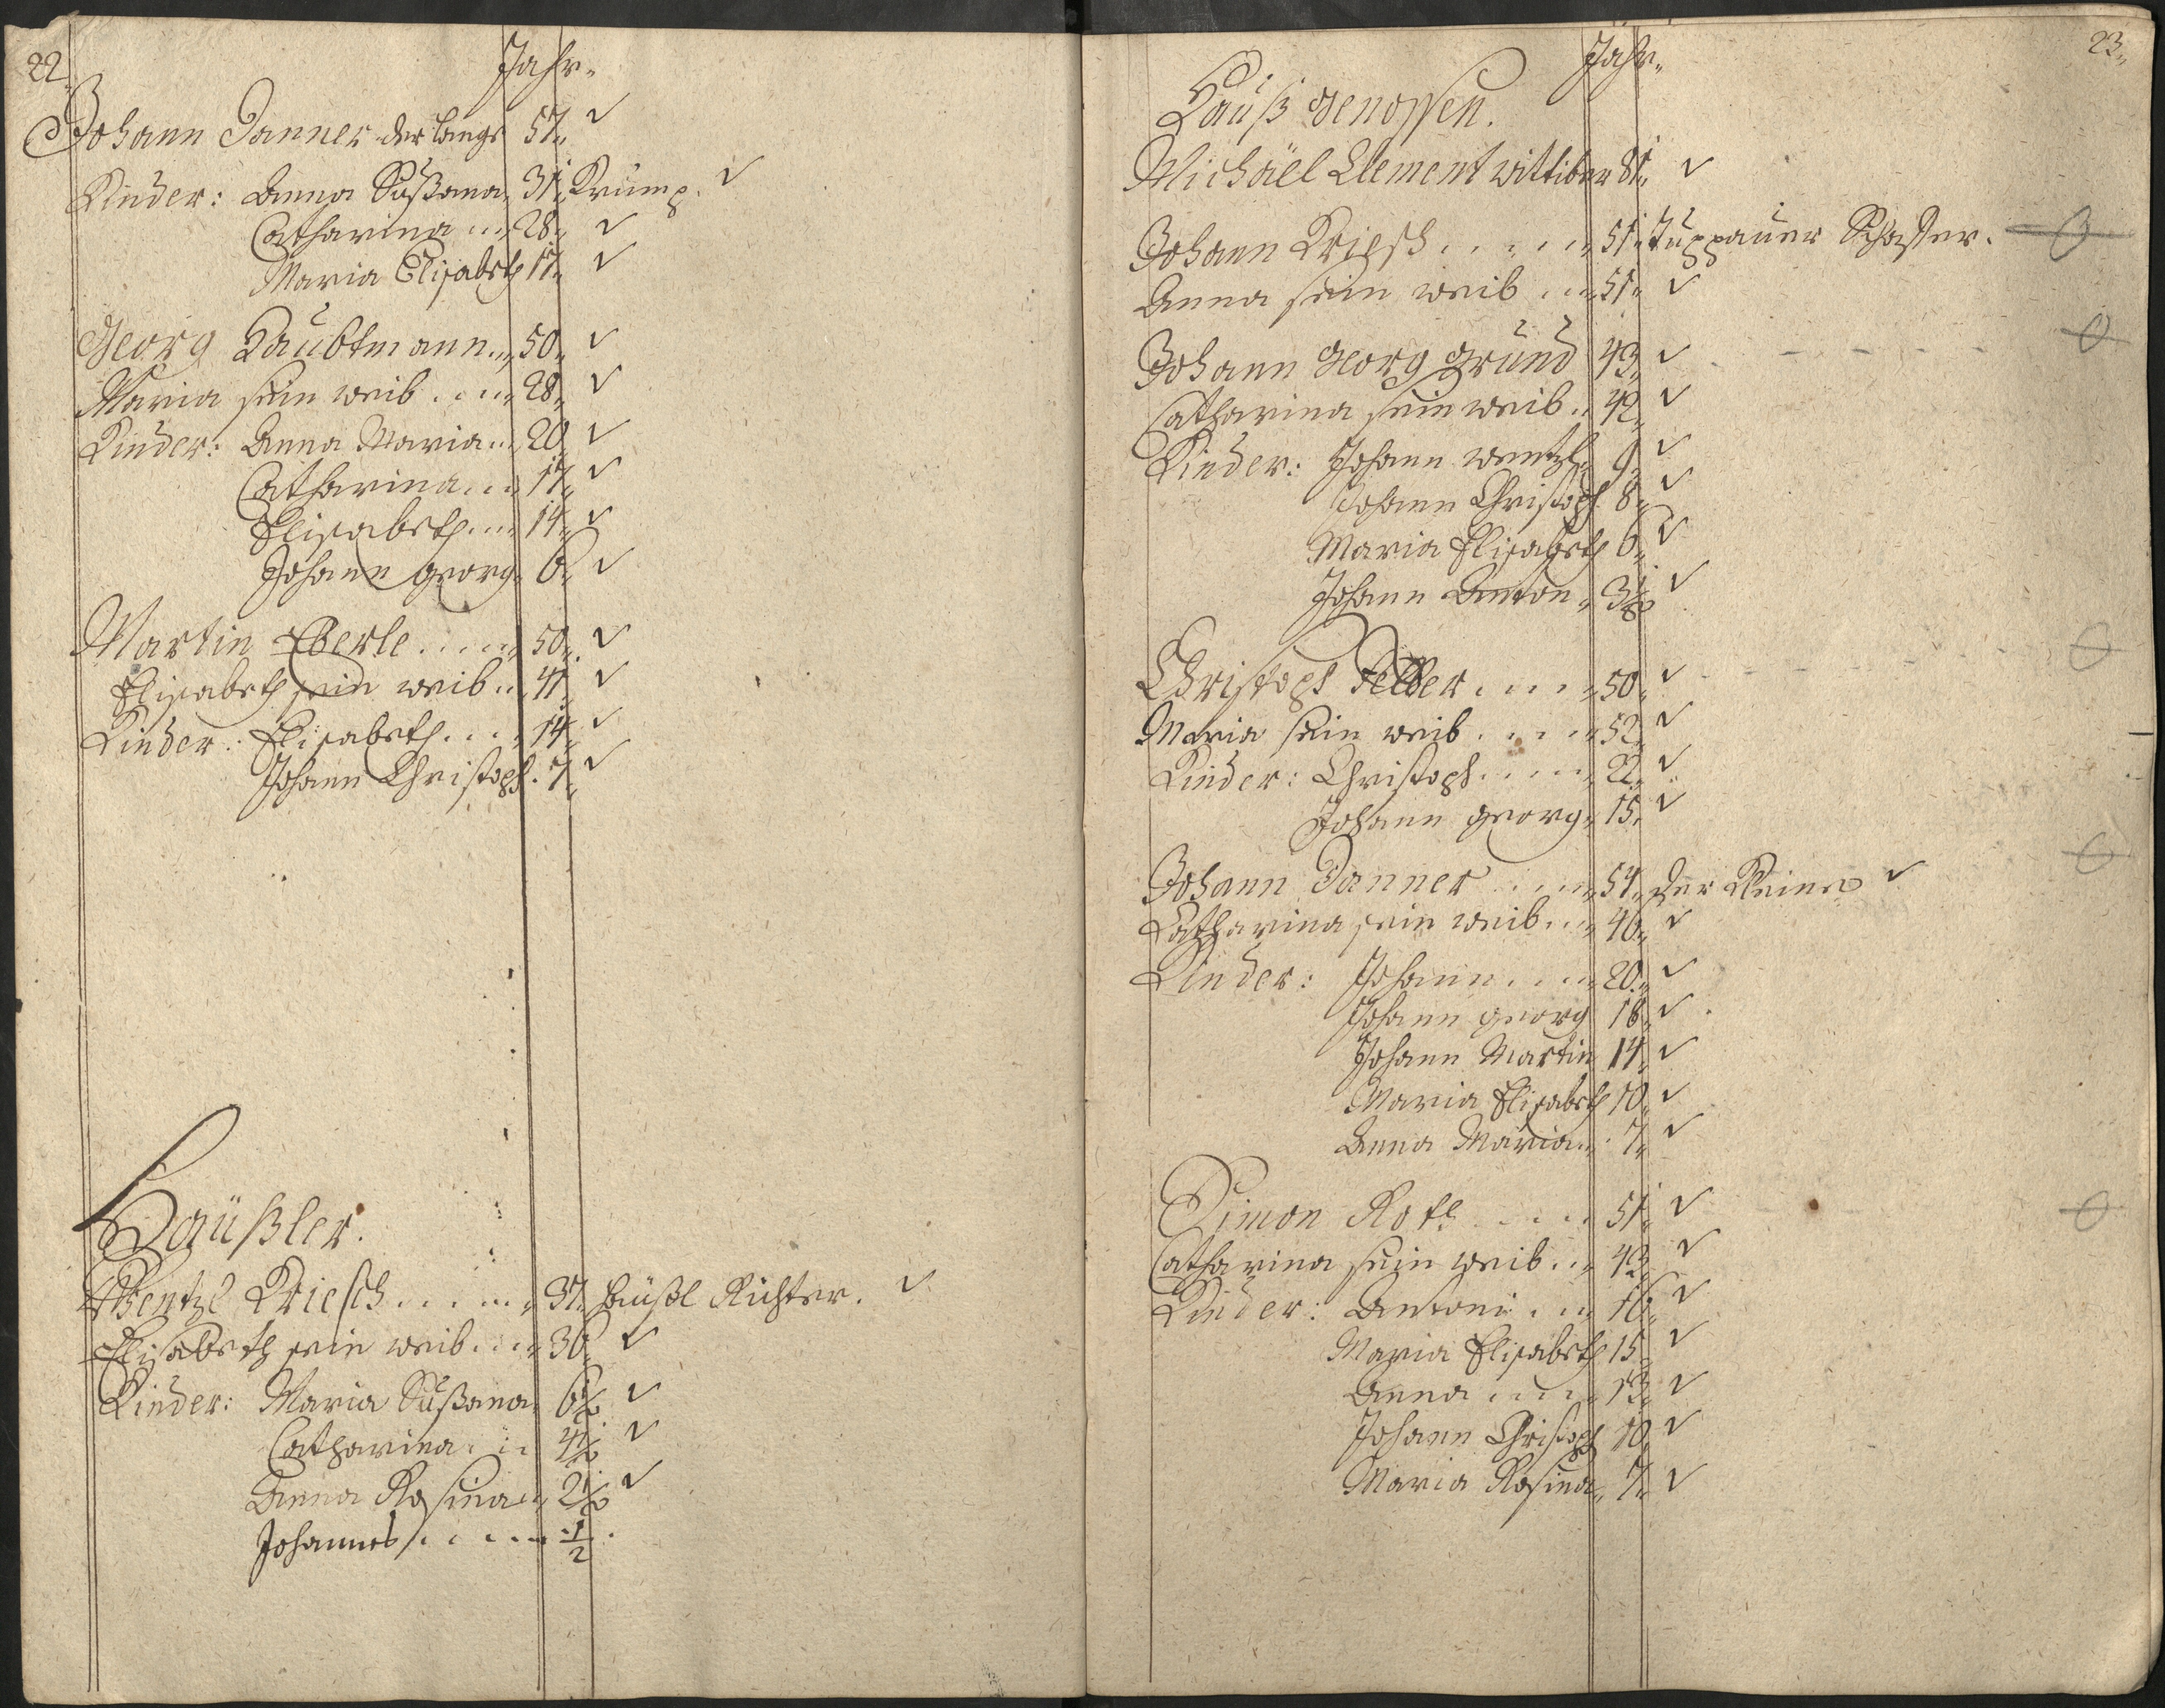 22.
Jahr.
Johann Danner der lange 57. ✓
Kinder: Anna Sußana 31. Krump. ✓
Catharina ... 28. ✓
Maria Elisabeth 17. ✓
Georg Haubtmann ... 50. ✓
Maria sein weib ... 28. ✓
Kinder: Anna Maria ... 20 ✓
Catharina ... 17. ✓
Elisabeth ... 14. ✓
Johann Georg 6. ✓
Martin Eberle ... 50. ✓
Elisabeth sein weib .. 41. ✓
Kinder: Elisabeth ... 14. ✓
Johann Christoph. 7. ✓
Haüßler.
Wentzl Kriesch ... 37. Häußl Richter. ✓
Elisabeth sein weib ... 36 ✓
Kinder: Maria Sußana 6½ ✓
Catharina ... 4½ ✓
Anna Rosina 2½ ✓
Johannes ... ½.
23.
Jahr.
Hauß Genossen.
Michäel Clement wittiber 81. ✓
Johann Kriesch ... 51. Tuppauer Schaffer.
Anna sein weib ... 51. ✓
Johann Georg Grund 43. ✓
Catharina sein weib .. 42. ✓
Kinder: Johann Wentzl 9. ✓
Johann Christoph 8. ✓
Maria Elisabeth 6. ✓
Johann Anton 3½ ✓
Christoph Felber ... 50. ✓
Maria sein weib ... 52. ✓
Kinder: Christoph ... 22. ✓
Johann Georg 15. ✓
Johann Danner ... 54. der Kleine ✓
Catharina sein weib ... 46. ✓
Kinder: Johann ... 20. ✓
Johann Georg 18. ✓
Johann Martin 14. ✓
Maria Elisabeth 10. ✓
Anna Maria 7. ✓
Simon Roth ... 51. ✓
Catharina sein weib ... 43. ✓
Kinder: Antoni ... 16. ✓
Maria Elisabeth 15. ✓
Anna ... 13. ✓
Johann Christoph 10. ✓
Maria Rosina 7. ✓